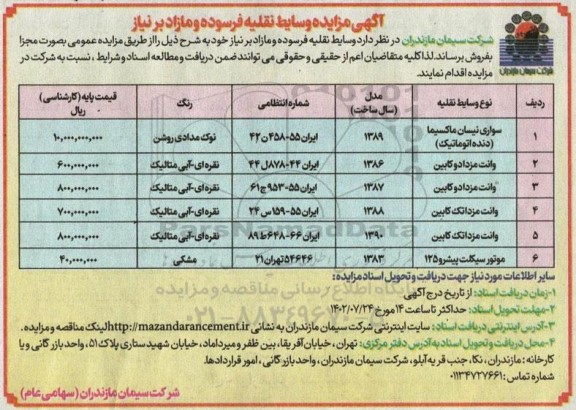 آگهی مزایده وسایط نقلیه فرسوده و مازاد بر نیاز
شرکت سیمان مازندران در نظر دارد وسایط نقلیه فرسوده و مازاد بر نیاز خود به شرح ذیل را از طریق مزایده عمومی بصورت مجزا
بفروش برساند. لذا کلیه متقاضیان اعم از حقیقی و حقوقی می توانند ضمن دریافت و مطالعه اسناد و شرایط ، نسبت به شرکت در
مزایده اقدام نمایند.
شرکت سیمان مازندران
ردیف نوع وسایط نقلیه مدل (سال ساخت) شماره انتظامی رنگ قیمت پایه (کارشناسی) ریال
۱ سواری نیسان ماکسیما (دنده اتوماتیک) ۱۳۸۹ ایران ۵۵-۴۵۸ن۴۲ نوک مدادی روشن ۱۰,۰۰۰,۰۰۰,۰۰۰
۲ وانت مزدا دو کابین ۱۳۸۶ ایران ۴۴-۸۷۸ل۴۴ نقره ای-آبی متالیک ۶۰۰,۰۰۰,۰۰۰
۳ وانت مزدا دو کابین ۱۳۸۷ ایران ۵۵-۹۵۳ج۶۱ نقره ای-آبی متالیک ۸۰۰,۰۰۰,۰۰۰
۴ وانت مزدا تک کابین ۱۳۸۸ ایران ۵۵-۱۵۹س۲۴ نقره ای-آبی متالیک ۷۰۰,۰۰۰,۰۰۰
۵ وانت مزدا تک کابین ۱۳۹۰ ایران ۶۶-۶۴۸ط۸۹ نقره ای-آبی متالیک ۸۰۰,۰۰۰,۰۰۰
۶ موتور سیکلت پیشرو ۱۲۵ ۱۳۸۳ ۵۴۶۴۶تهران ۲۱ مشکی ۴۰,۰۰۰,۰۰۰
سایر اطلاعات مورد نیاز جهت دریافت و تحویل اسناد مزایده:
۱-زمان دریافت اسناد: از تاریخ درج آگهی
۲-مهلت تحویل اسناد: حداکثر تا ساعت ۱۴ مورخ ۱۴۰۲/۰۷/۲۴
۳-آدرس اینترنتی دریافت اسناد : سایت اینترنتی شرکت سیمان مازندران به نشانی http://mazandarancement.ir لینک مناقصه و مزایده.
۴-محل دریافت و تحویل اسناد به آدرس دفتر مرکزی: تهران ، خیابان آفریقا، بین ظفر و میرداماد، خیابان شهید ستاری پلاک ۵۱، واحد بازرگانی و یا
کارخانه : مازندران ، نکا، جنب قریه آبلو، شرکت سیمان مازندران ، واحد بازرگانی ، امور قراردادها.
شماره تماس: ۰۱۱۳۴۷۲۷۶۶۱
شرکت سیمان مازندران (سهامی عام)
ParsNamadData
پایگاه اطلاع رسانی مناقصه و مزایده